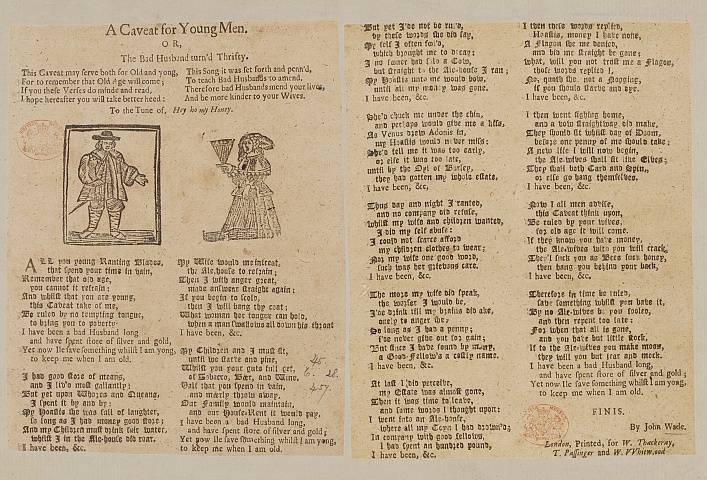 A Caveat for Young Men.
OR,
The Bad Husband turn'd Thrifty.
This Caveat may serve both for Old and yong,
For to remember that Old Age will come;
If you these Verses do minde and read,
I hope hereafter you will take better heed:
This Song it was set forth and penn'd,
To teach Bad Husbands to amend.
Therefore bad Husbands mend your lives,
And be more kinder to your Wives.
To the Tune of, Hey ho my Honey.
ALL you young Ranting Blades,
that spend your time in vain,
Remember that old age,
you cannot it refrain:
And whilst that you are young,
this Caveat take of me,
Be ruled by no tempting tongue,
to bring you to poverty
I have been a bad Husband long
and have spent store of silver and gold,
Yet now Ile save something whilst I am yong,
to keep me when I am old.
I had good store of means,
and I liv'd most gallantly;
But yet upon Whores and Queans,
I spent it by and by:
My Hoastis she was full of laughter,
so long as I had money good store;
And my Children must drink fair water,
whilst I in the Ale-house did roar.
I have been, &c.
My Wife would me intreat,
the Ale-house to refrain;
Then I with anger great,
made answer straight again:
If you begin to scold,
then I will bang thy coat;
What woman her tongue can hold,
when a man swallows all down his throat
I have been, &c.
My Children and I must sit,
until we starve and pine,
Whilst you your guts full get,
of Tobacco, Beer, and Wine.
Half that you spend in vain,
and merily throw away,
Our Family would maintain,
and our House-Rent it would pay.
I have been a bad Husband long,
and have spent store of silver and gold;
Yet now Ile save something whilst I am yong,
to keep me when I am old.
But yet I'de not be rul'd,
by these words she did say,
My self I often fool'd,
which brought me to decay:
I no sooner had sold a Cow,
but straight to the Ale-house I ran;
My Hoastis unto me would bow,
until all my money was gone.
I have been, &c.
She'd chuck me under the chin,
and perhaps would give me a kiss,
As Venus drew Adonis in,
my Hoastis would never miss:
She'd tell me it was too early,
or else it was too late,
until by the Oyl of Barley,
they had gotten my whole estate.
I have been, &c.
Thus day and night I ranted,
and no company did refuse,
Whilst my wife and children wanted,
I did my self abuse:
I could not scarce afford
my children clothes to wear;
Nor my wife one good word,
such was her grievous care.
I have been, &c.
The more my wife did speak,
the worser I would be,
I've drink till my brains did ake,
onely to anger she:
So long as I had a penny;
I've never give out for gain;
But since I have found by many,
a Good-Fellow's a costly name.
I have been, &c.
At last I did perceive,
my Estate was almost gone,
Then it was time to leave,
and some words I thought upon:
I went into an Ale-house,
where all my Coyn I had drown'd;
In company with good fellows,
I had spent an hundred pound,
I have been, &c.
I then these words replied,
Hoastis, money I have none,
A Flagon she me denied,
and bid me straight be gone;
what, will you not trust me a Flagon,
those words replied I,
No, quoth she not a Noggin,
if you should starve and dye.
I have been, &c.
I then went sighing home,
and a vow straightway did make,
They should sit whilst day of Doom,
before one penny of me should take;
A new life I will now begin,
the Ale-wives shall sit like Elves;
They shall both Card and Spin,
or else go hang themselves.
I have been, &c.
Now I all men advise,
this Caveat think upon,
Be ruled by your wives,
for old age it will come.
If they know you have money,
the Ale-wives with you will crack,
They'l suck you as Bees suck honey,
then bang you behind your back,
I have been, &c.
Therefore in time be ruled,
save something whilst you have it,
By no Ale-wives be you fooled,
and then repent too late:
For when that all is gone,
and you have but little stock,
If to the Ale-wives you make moan,
they will you but jear and mock.
I have been a bad Husband long,
and have spent store of silver and gold;
Yet now Ile save something whilst I am yong,
to keep me when I am old.
FINIS.
By John Wade.
London, Printed, for W. Thackeray,
T. Passinger and W. VVhitwood